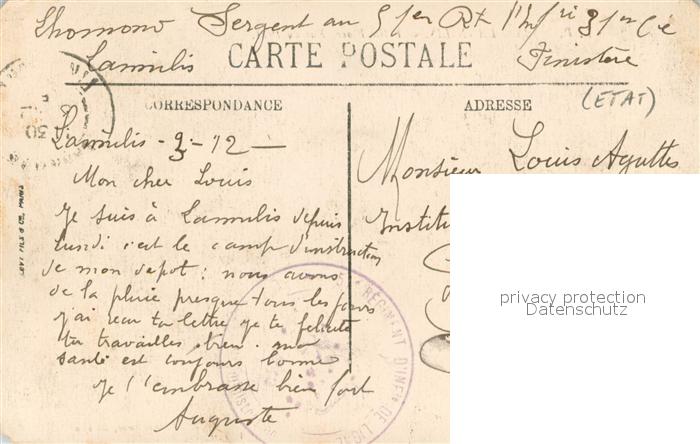 Lhomond Sergent au
Lannilis
CARTE POSTALE
Finistère
CORRESPONDANCE
ADRESSE
(ETAT)
Lannilis - 9-12 -
Monsieur Louis Aguttes
Mon cher Louis
Instit
Je suis à Lannilis depuis
lundi c'est le camp d'instruction
de mon depot : nous avons
de la pluie presque tous les jours
J'ai reçu ta lettre je te felicite
tu travailles bien. ma
santé est toujours bonne
Je t'embrasse bien fort
Auguste
LEVY FILS & Cie, PARIS
RÉGIMENT D'INFie DE LIGNE
privacy protection
Datenschutz